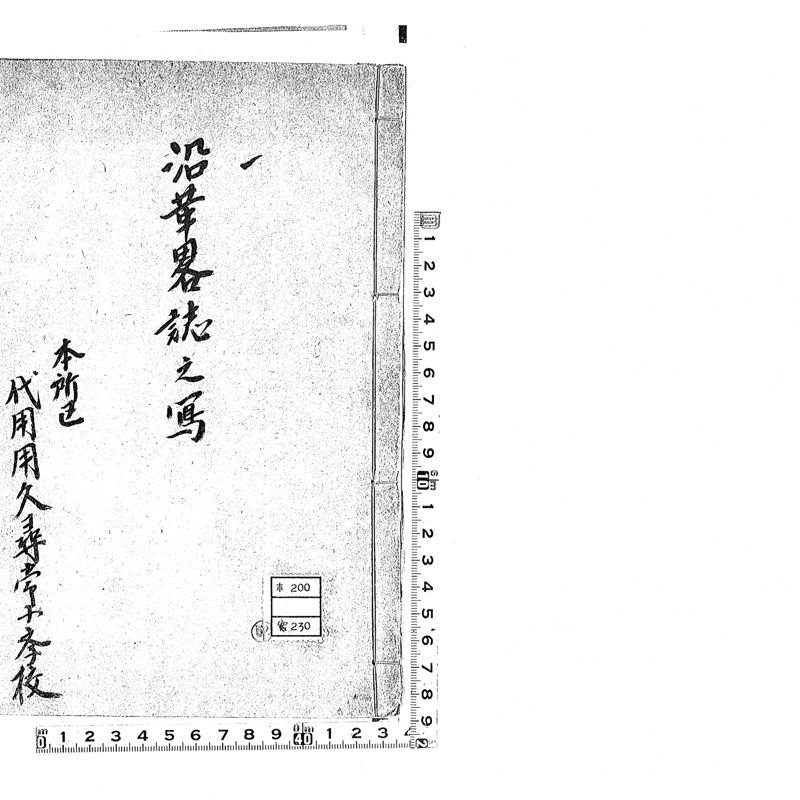 一
沿革畧誌之写
本所区
代用用久尋常小学校
本 200
寄 230
1 2 3 4 5 6 7 8 9 10 1 2 3 4 5 6 7 8 9
0 1 2 3 4 5 6 7 8 9 10 1 2 3 4